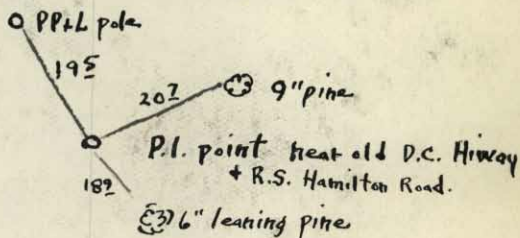 PP&L pole
19⁵
20⁷ 9" pine
P.I. point near old D.C. Hiway
& R.S. Hamilton Road.
18⁹
6" leaning pine